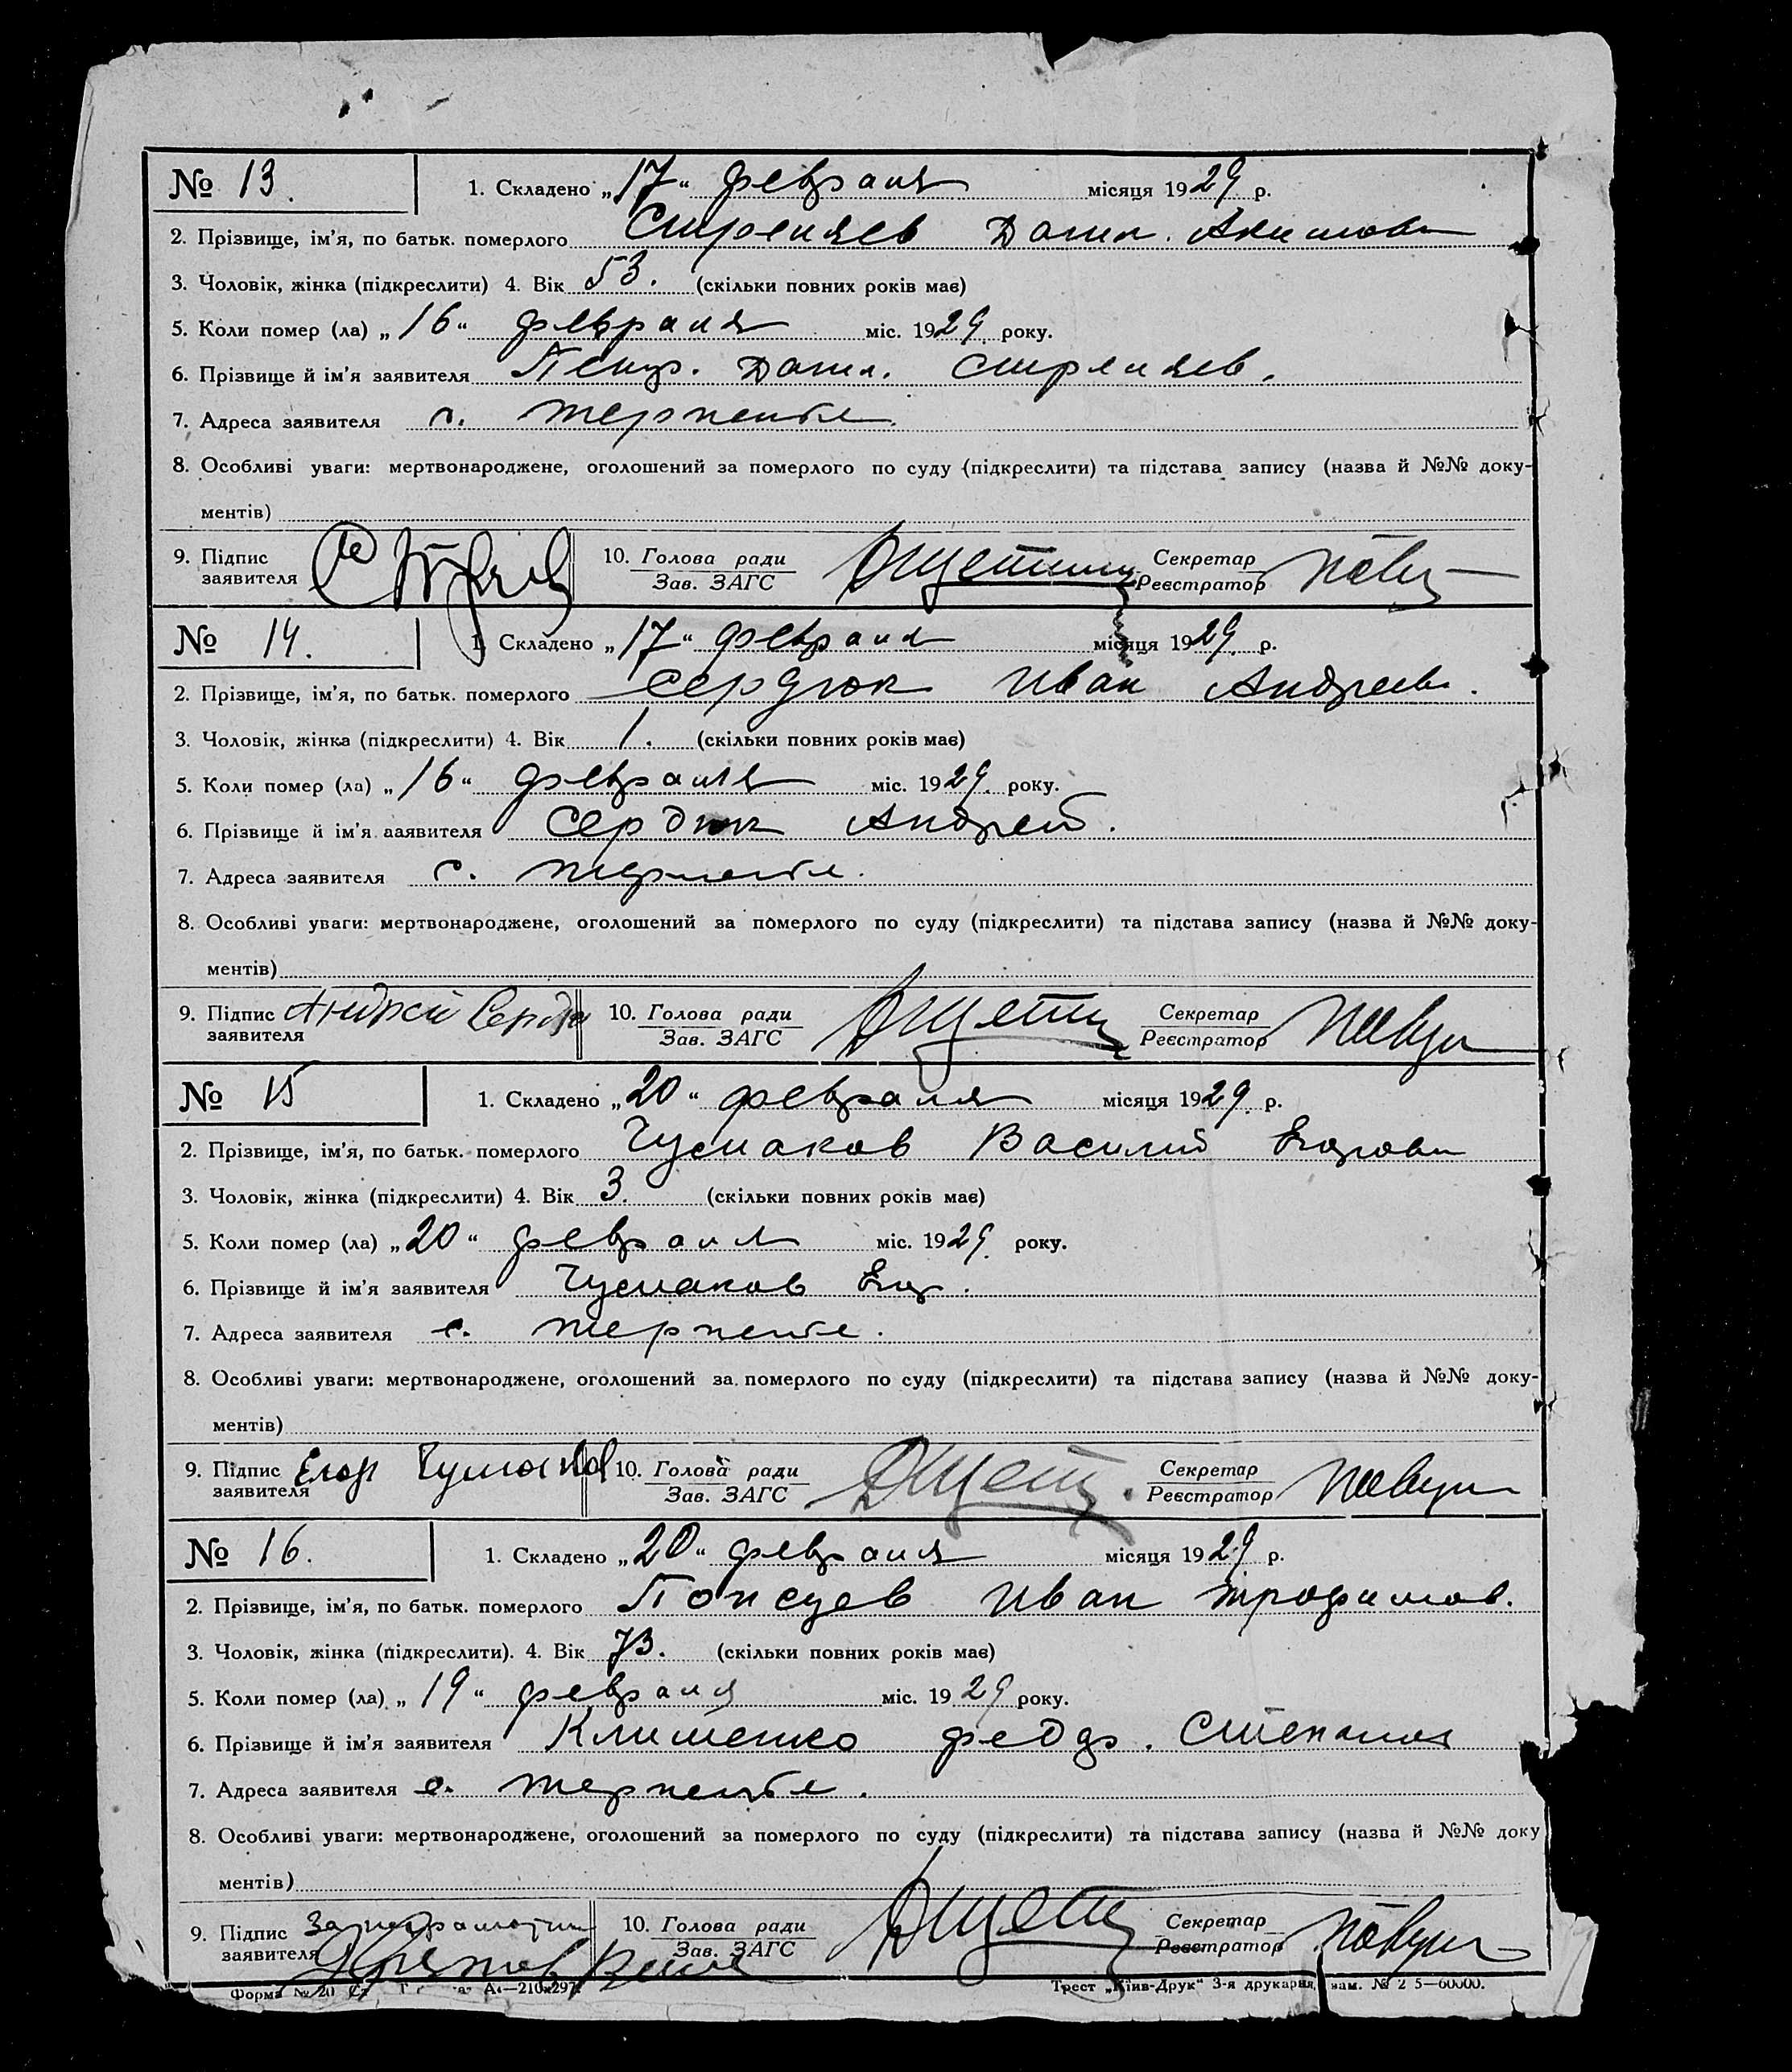 № 13. 1. Складено „17“ февраля місяця 1929 р.
2. Прізвище, ім'я, по батьк. померлого Стреляев Данил. Акимови
3. Чоловік, жінка (підкреслити) 4. Вік 53. (скільки повних років має)
5. Коли помер (ла) „16“ февраля міс. 1929 року.
6. Прізвище й ім'я заявителя Данил. Стреляев.
7. Адреса заявителя с. Терпенье.
8. Особливі уваги: мертвонароджене, оголошений за померлого по суду (підкреслити) та підстава запису (назва й №№ доку-
ментів)
9. Підпис заявителя 10. Голова ради Зав. ЗАГС Секретар Реєстратор
№ 14. 1. Складено „17“ февраля місяця 1929. р.
2. Прізвище, ім'я, по батьк. померлого Сердюк Иван Андреев.
3. Чоловік, жінка (підкреслити) 4. Вік 1. (скільки повних років має)
5. Коли помер (ла) „16“ февраля міс. 1929. року.
6. Прізвище й ім'я заявителя Сердюк Андрей.
7. Адреса заявителя с. Терпенье.
8. Особливі уваги: мертвонароджене, оголошений за померлого по суду (підкреслити) та підстава запису (назва й №№ доку-
ментів)
9. Підпис заявителя Андрей Сердю 10. Голова ради Зав. ЗАГС Секретар Реєстратор
№ 15 1. Складено „20“ февраля місяця 1929. р.
2. Прізвище, ім'я, по батьк. померлого Чумаков Василий Егорови
3. Чоловік, жінка (підкреслити) 4. Вік 3. (скільки повних років має)
5. Коли помер (ла) „20“ февраля міс. 1929. року.
6. Прізвище й ім'я заявителя Чумаков Егор.
7. Адреса заявителя с. Терпенье.
8. Особливі уваги: мертвонароджене, оголошений за померлого по суду (підкреслити) та підстава запису (назва й №№ доку-
ментів)
9. Підпис заявителя Егор Чумаков 10. Голова ради Зав. ЗАГС Секретар Реєстратор
№ 16. 1. Складено „20“ февраля місяця 1929 р.
2. Прізвище, ім'я, по батьк. померлого Иван Трофимов.
3. Чоловік, жінка (підкреслити). 4. Вік 73. (скільки повних років має)
5. Коли помер (ла) „19“ февраля міс. 1929 року.
6. Прізвище й ім'я заявителя Клименко Федор. Степанов
7. Адреса заявителя с. Терпенье.
8. Особливі уваги: мертвонароджене, оголошений за померлого по суду (підкреслити) та підстава запису (назва й №№ доку
ментів)
9. Підпис заявителя За неграмотн 10. Голова ради Зав. ЗАГС Секретар Реєстратор
Форма № 20 А4—210х297. Трест „Київ-Друк“ 3-я друкарня, зам. № 2 5—60000.